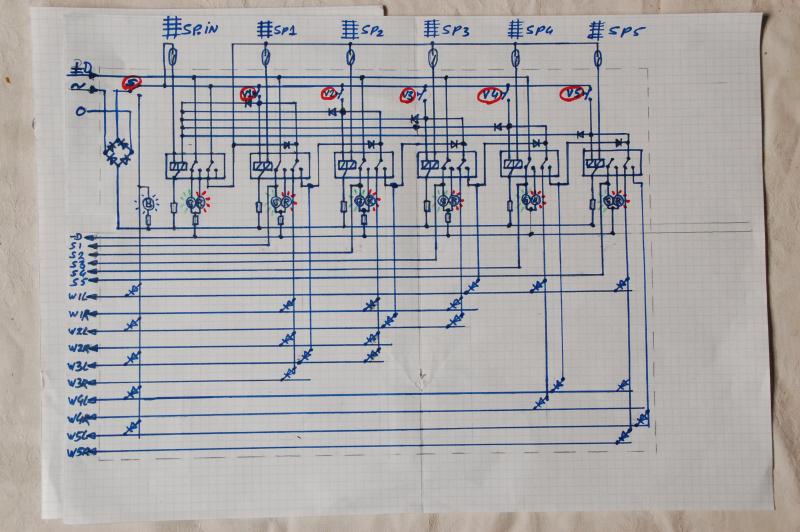 SP.IN SP1 SP2 SP3 SP4 SP5
+D
~
0
S V1 V2 V3 V4 V5
B G R G R G R G R G R G R
-D
S1
S2
S3
S4
S5
W1L
W1R
W2L
W2R
W3L
W3R
W4L
W4R
W5L
W5R